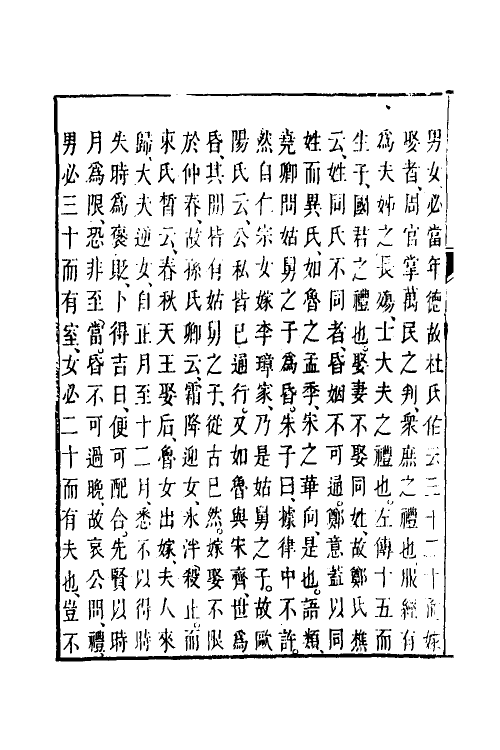 男女必當年德故杜氏佑云三十二十而嫁
娶者周官掌萬民之判衆庶之禮也服經有
爲夫姊之長殤士大夫之禮也左傳十五而
生子國君之禮也娶妻不娶同姓故鄭氏樵
云姓同氏不同者昏姻不可通鄭意蓋以同
姓而異氏如魯之孟季宋之華向是也語類
堯卿問姑舅之子爲昏朱子曰據律中不許
然自仁宗女嫁李璋家乃是姑舅之子故歐
陽氏云公私皆已通行又如魯與宋齊世爲
昏其間皆有姑舅之子從古已然嫁娶不限
於仲春故孫氏卿云霜降迎女氷泮殺止而
束氏晳云春秋天王娶后魯女出嫁夫人來
歸大夫逆女自正月至十二月悉不以得時
失時爲褒貶卜得吉日便可配合先賢以時
月爲限恐非至當昏不可過晚故哀公問禮
男必三十而有室女必二十而有夫也豈不